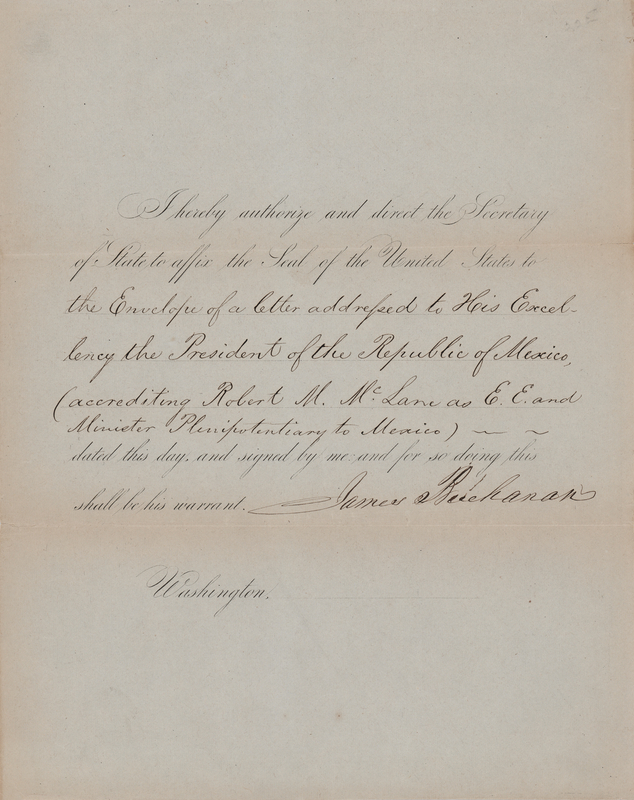 I hereby authorize and direct the Secretary
of State to affix the Seal of the United States to
the Envelope of a letter addressed to His Excel-
lency the President of the Republic of Mexico,
(accrediting Robert M. McLane as E. E. and
Minister Plenipotentiary to Mexico) — ~
dated this day, and signed by me: and for so doing this
shall be his warrant. James Buchanan
Washington,